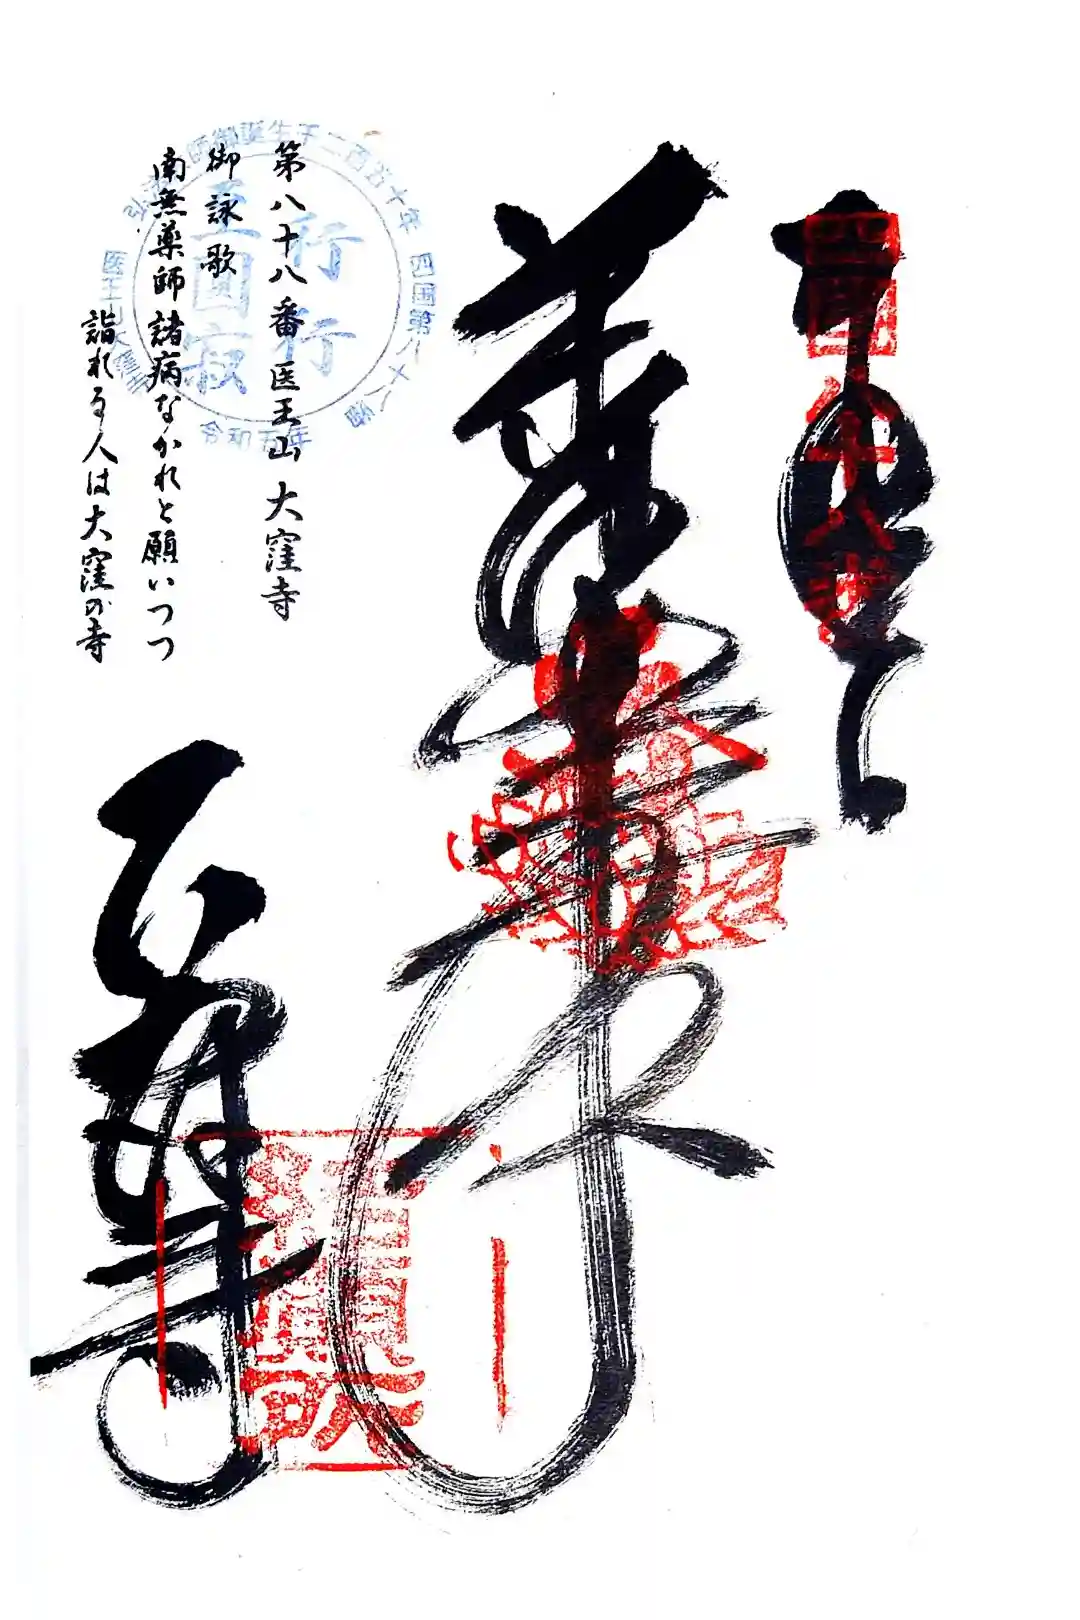 奉納
四国第八十八番
薬師如来
大窪寺
第八十八番 医王山 大窪寺
御詠歌
南無薬師 諸病なかれと願いつつ
詣れる人は大窪の寺
弘法大師御誕生千二百五十年 四国第八十八番
医王山大窪寺
令和五年
行行
至円寂